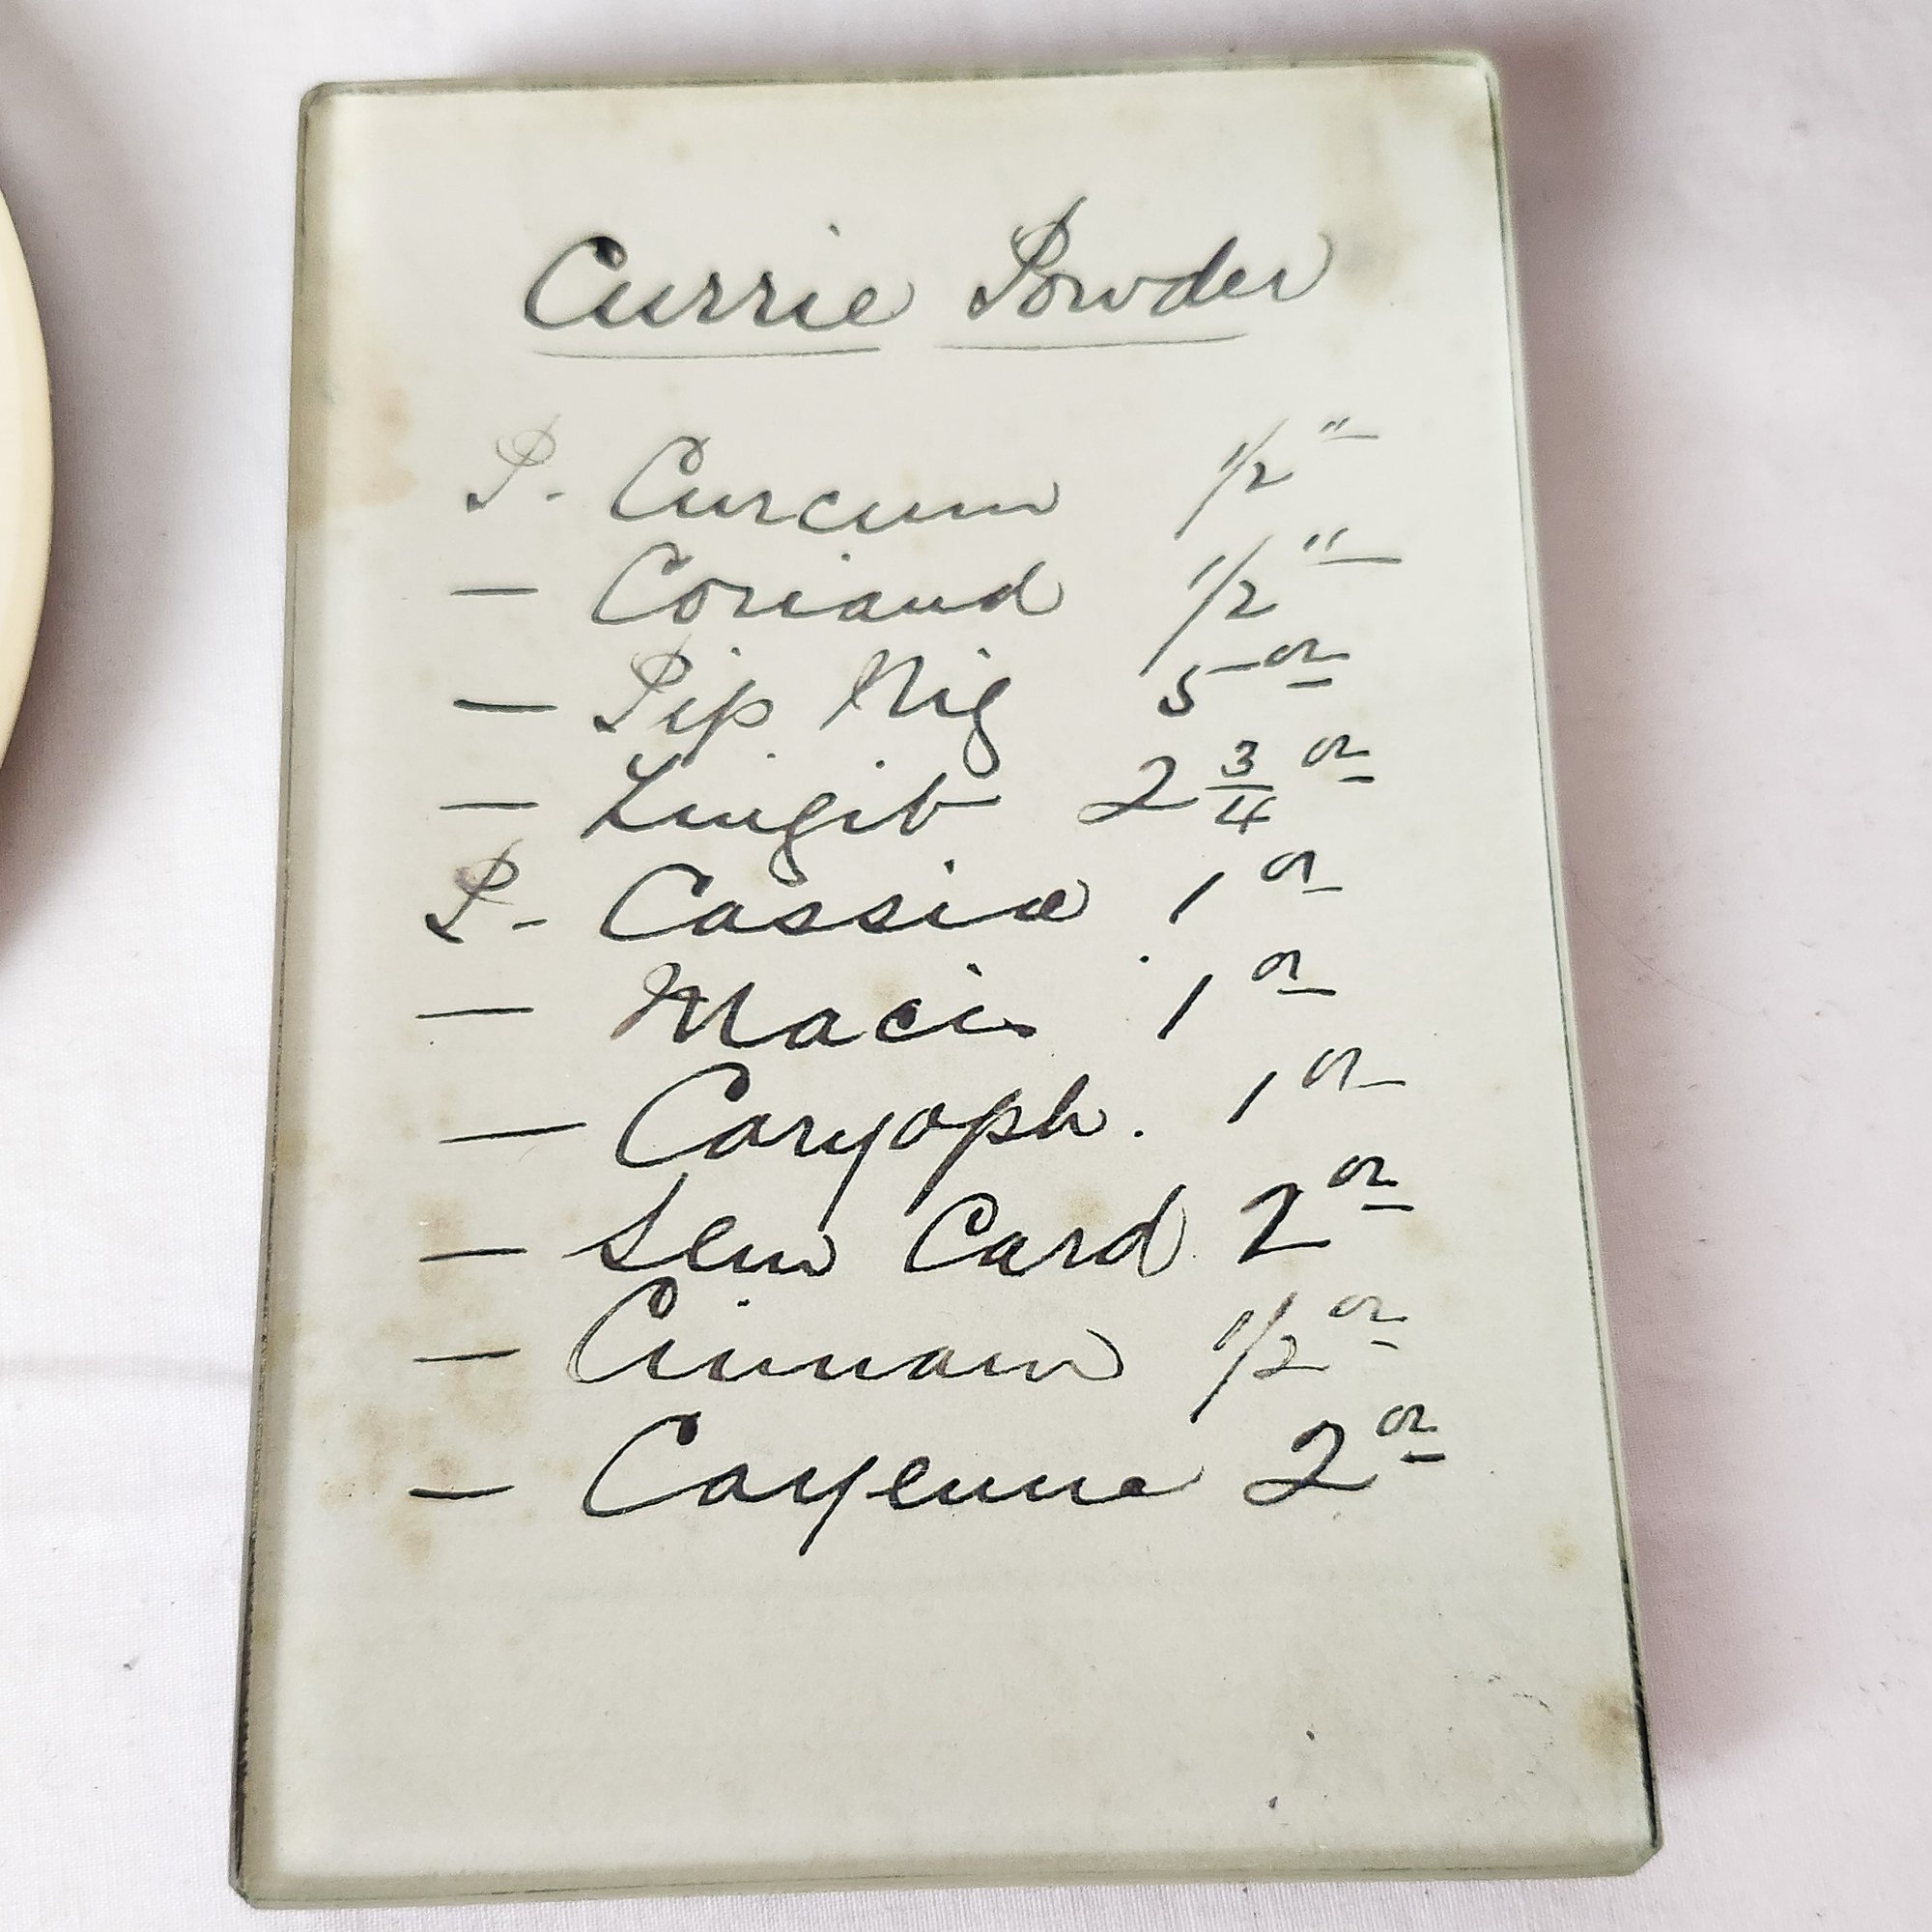 Currie Powder
P. Curcum 1/2 "
— Coriand 1/2 "
— Pip. Nig 5 oz
— Zingib 2 3/4 oz
P. Cassiae 1 oz
— Macis 1 oz
— Caryoph. 1 oz
— Sem Card 2 oz
— Cinnam 1/2 oz
— Cayenne 2 oz